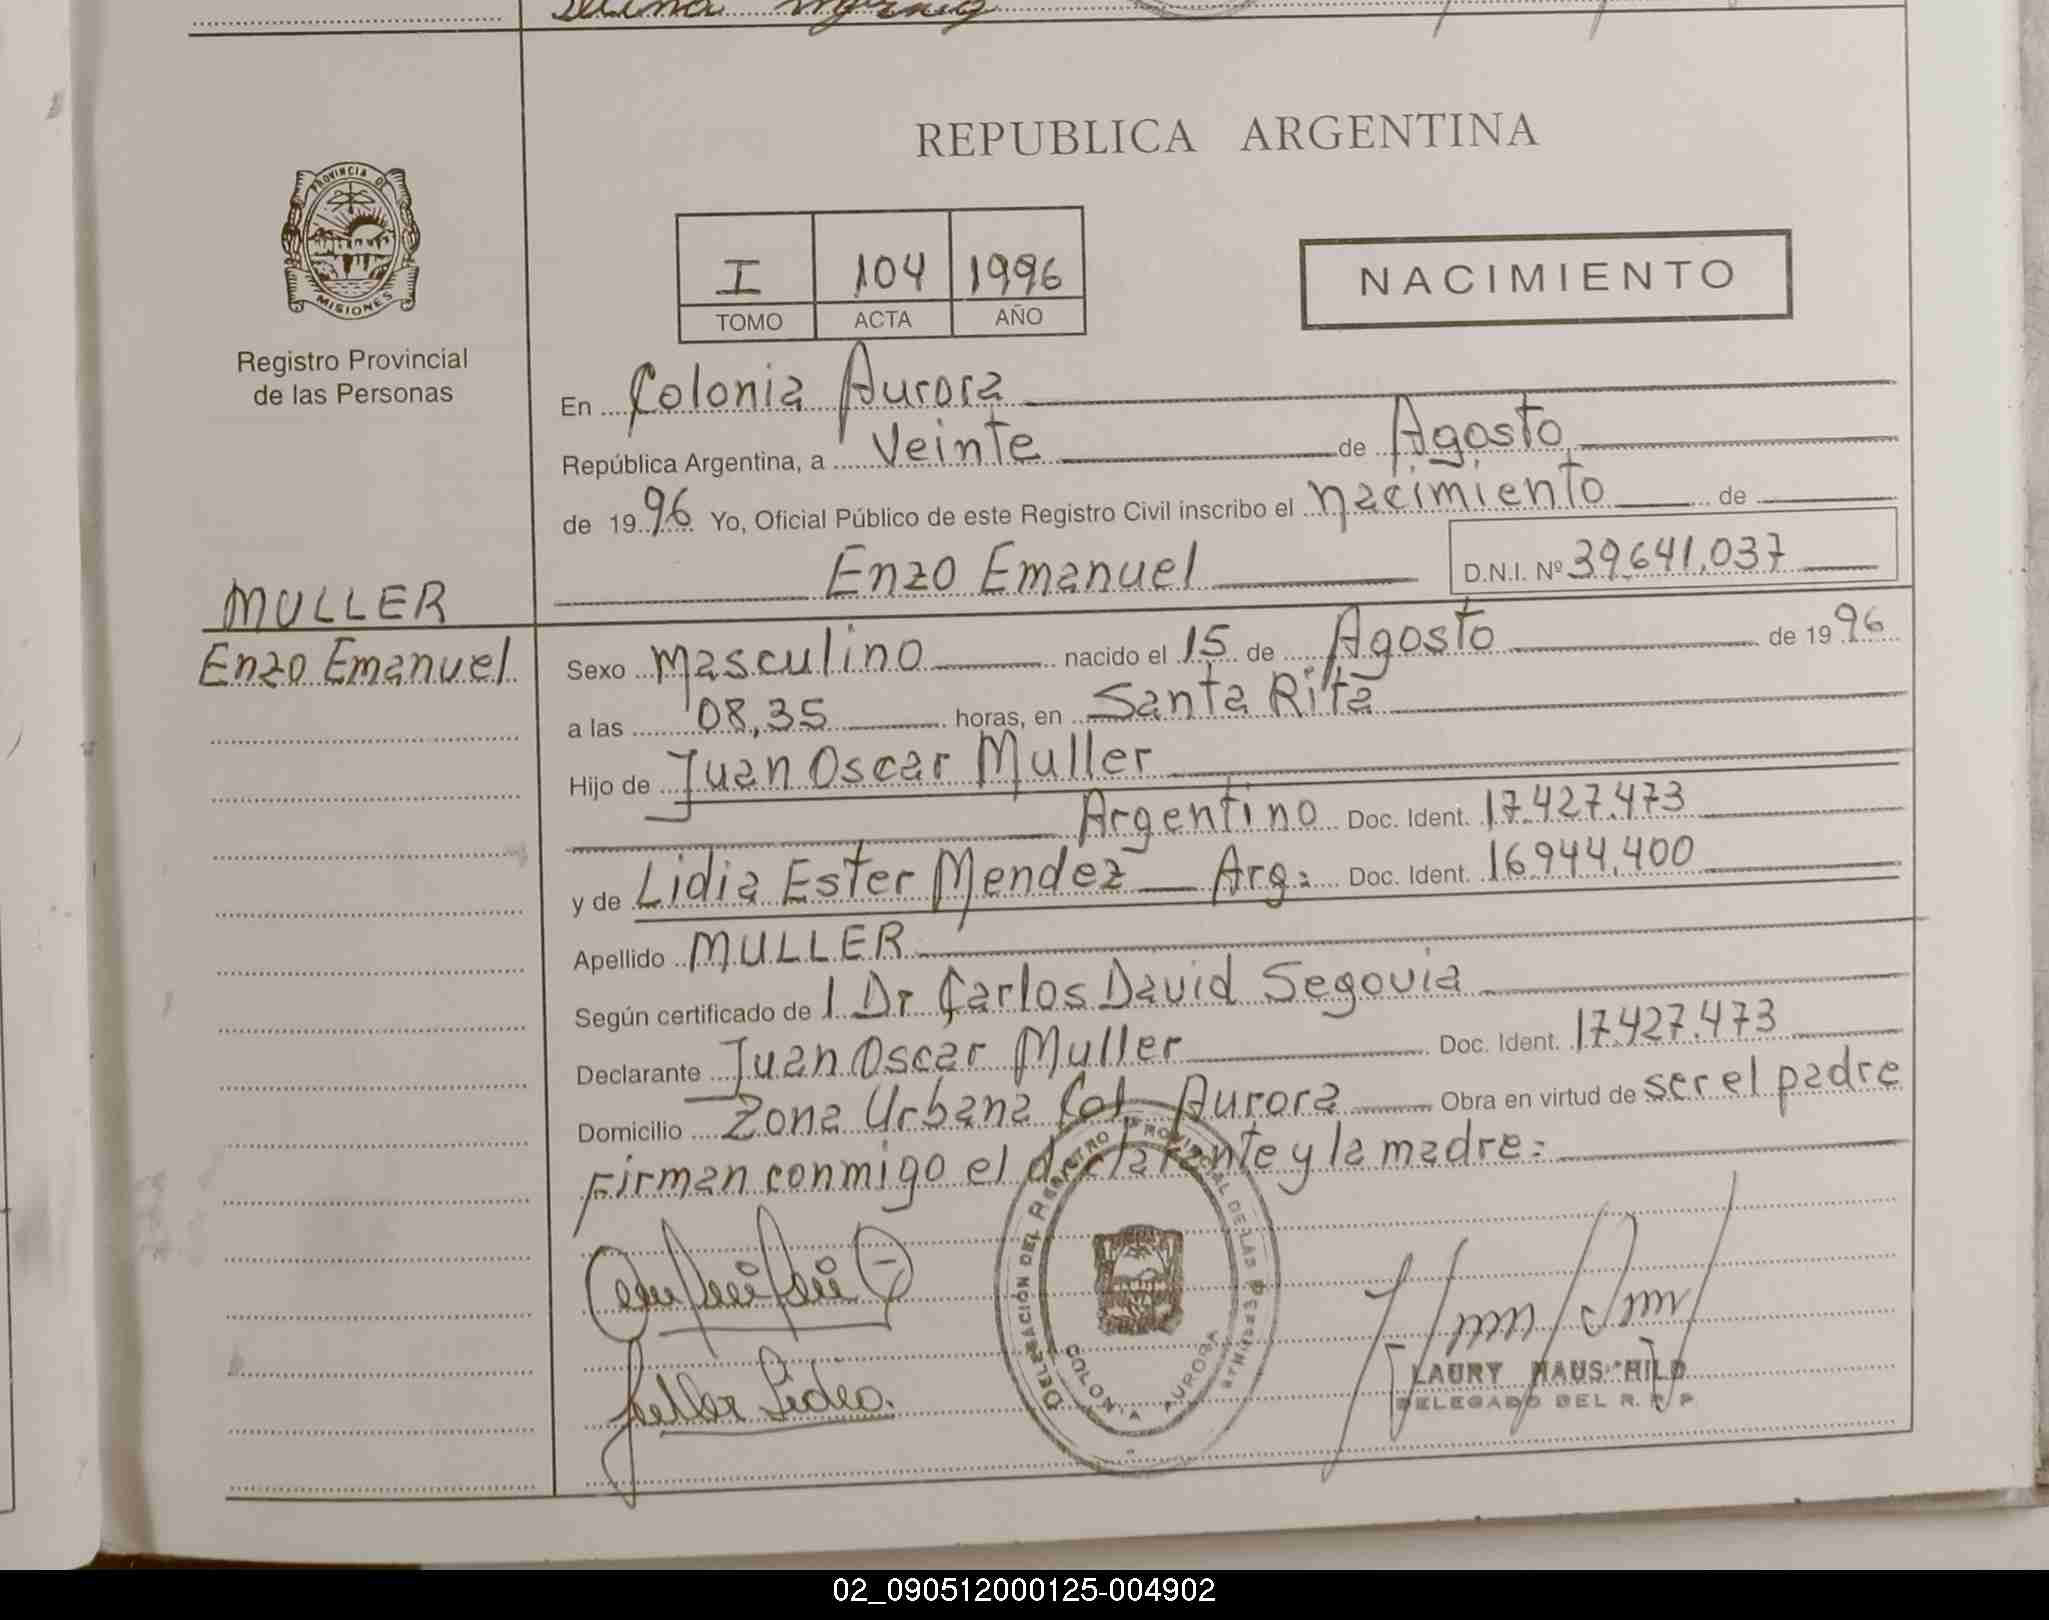 PROVINCIA DE
MISIONES
Registro Provincial
de las Personas
MULLER
Enzo Emanuel
REPUBLICA ARGENTINA
I 104 1996
TOMO ACTA AÑO
NACIMIENTO
En Colonia Aurora
República Argentina, a Veinte de Agosto
de 1996 Yo, Oficial Público de este Registro Civil inscribo el nacimiento de
Enzo Emanuel D.N.I. Nº 39.641.037
Sexo Masculino nacido el 15 de Agosto de 1996
a las 08,35 horas, en Santa Rita
Hijo de Juan Oscar Muller
Argentino Doc. Ident. 17.427.473
y de Lidia Ester Mendez Arg: Doc. Ident. 16.944.400
Apellido MULLER
Según certificado de 1 Dr Carlos David Segovia
Declarante Juan Oscar Muller Doc. Ident. 17.427.473
Domicilio Zona Urbana Col Aurora Obra en virtud de ser el padre
Firman conmigo el declarante y la madre:
DELEGACIÓN DEL REGISTRO PROVINCIAL DE LAS PERSONAS
COLONIA AURORA
LAURY HAUSCHILD
DELEGADO DEL R.P.P
02_090512000125-004902